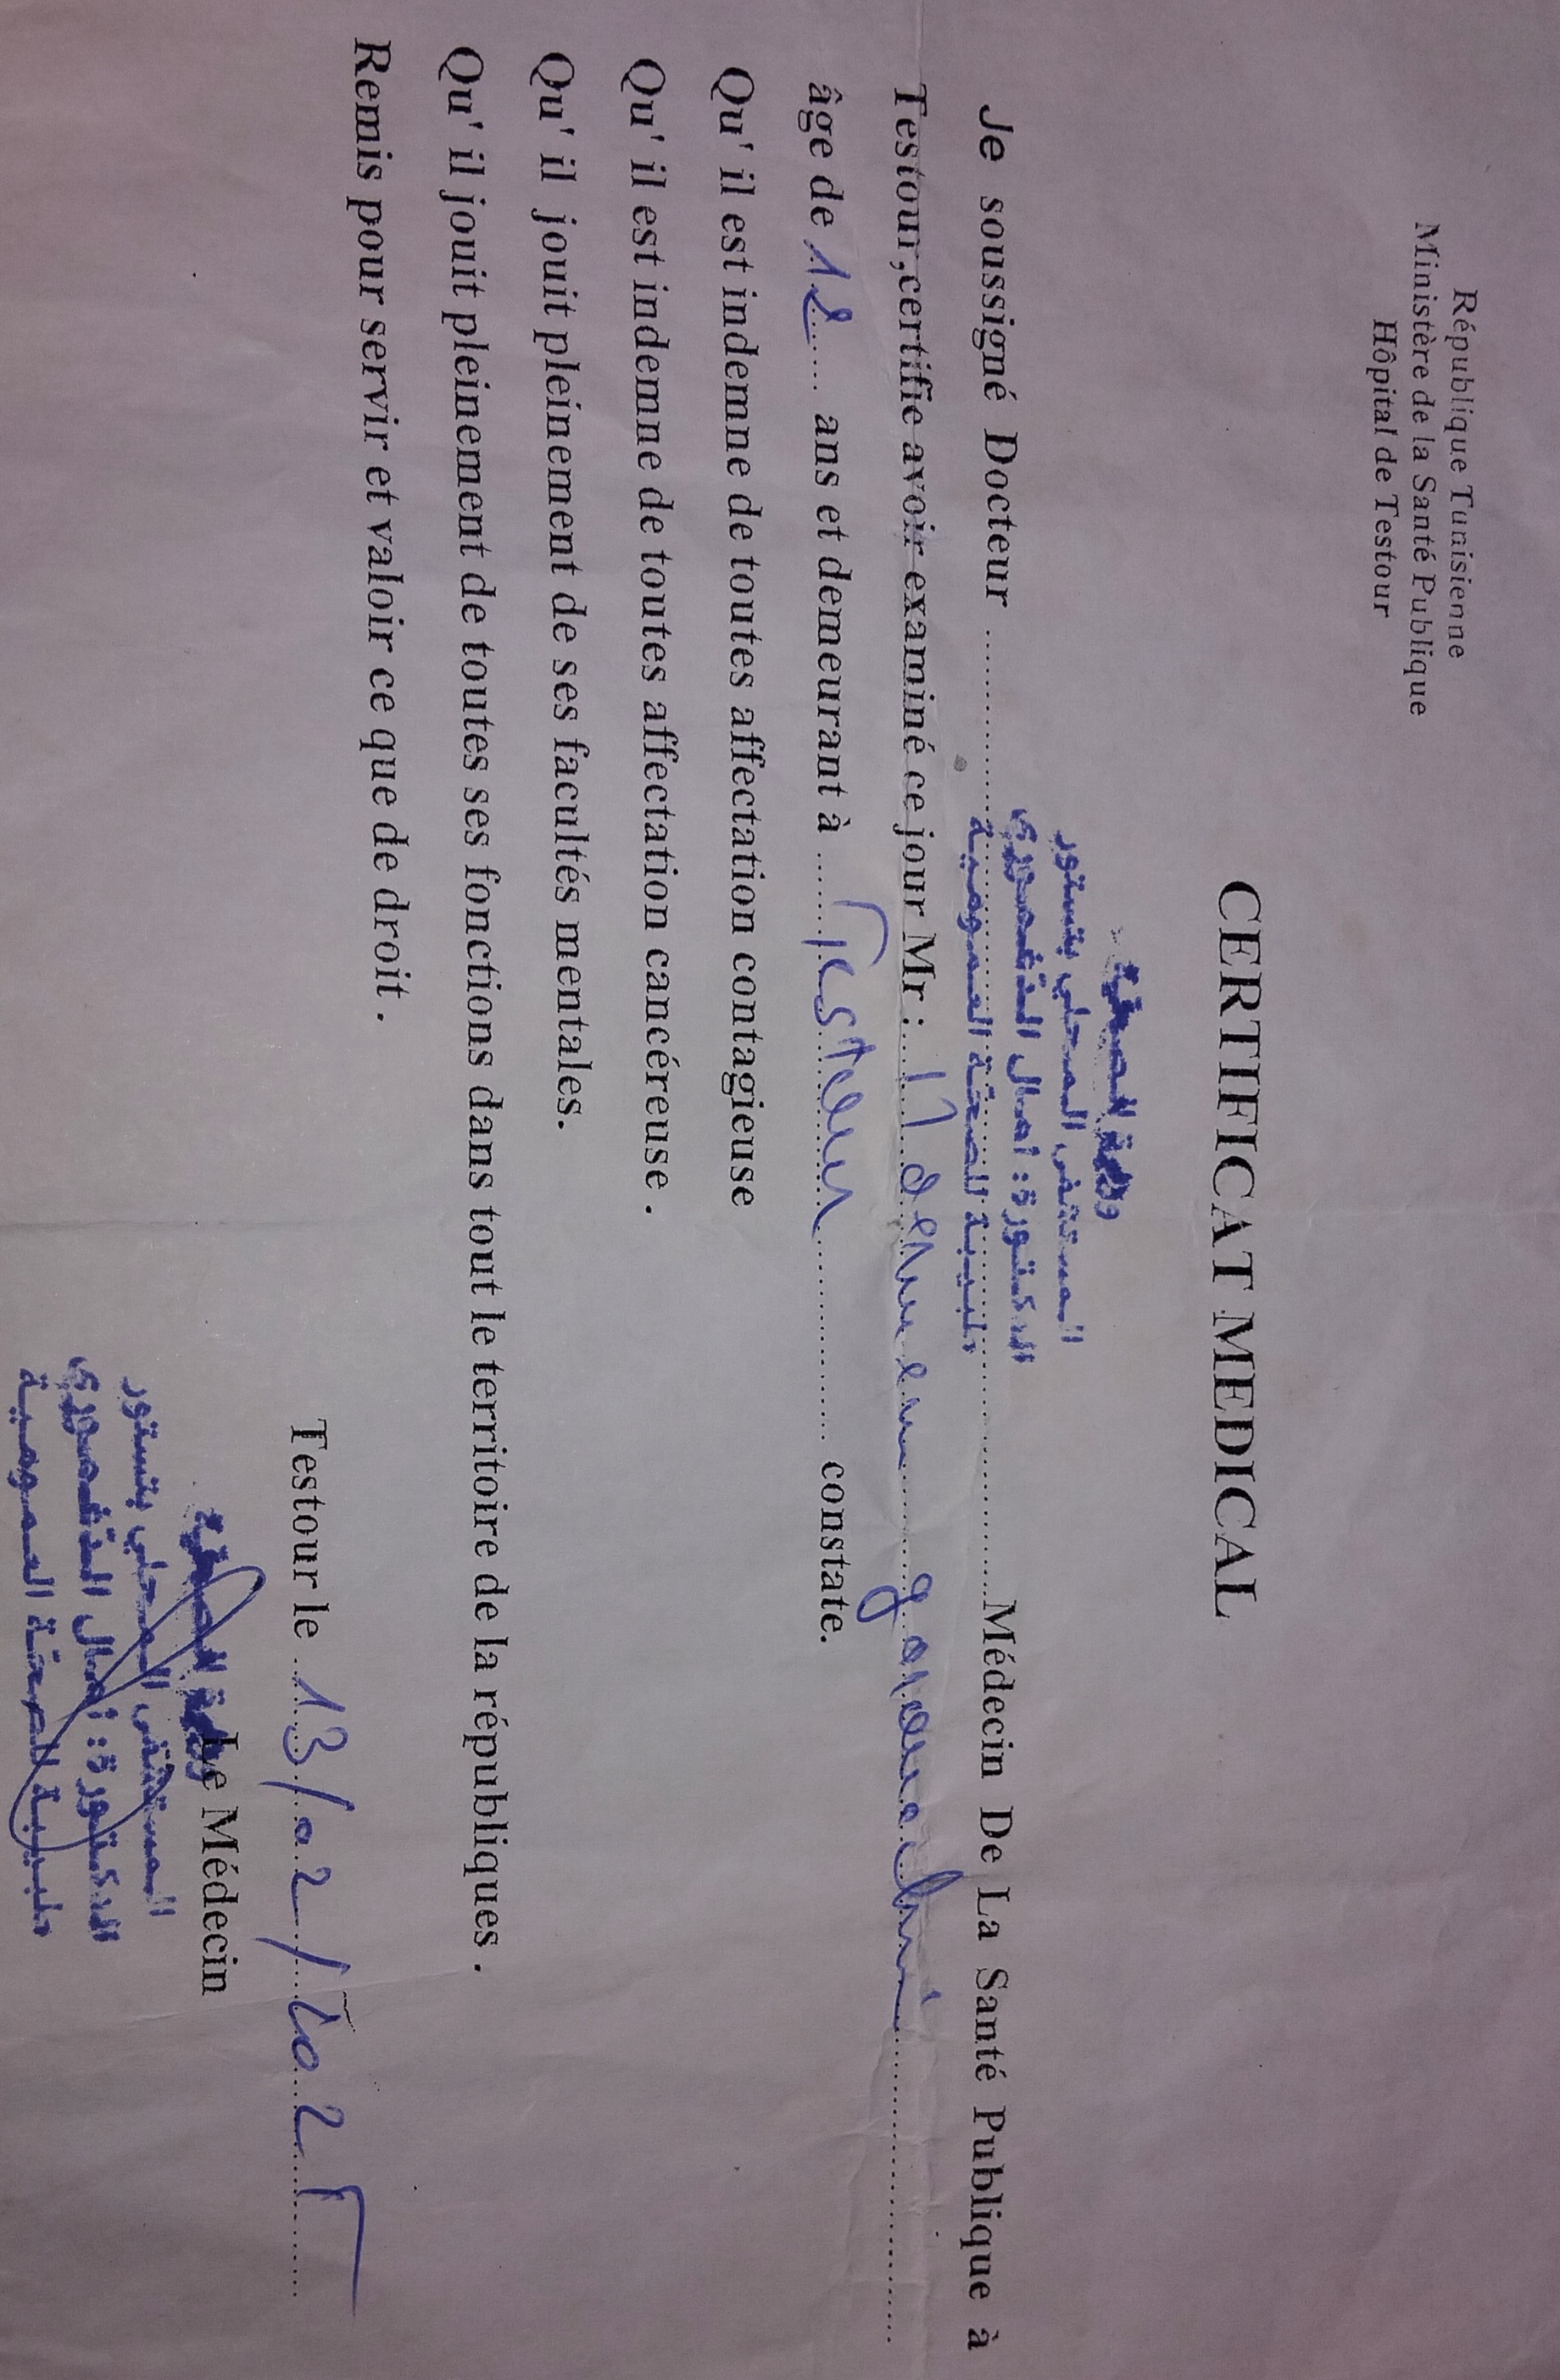 République Tunisienne
Ministère de la Santé Publique
Hôpital de Testour
CERTIFICAT MEDICAL
وزارة الصحة
المستشفى المحلي بتستور
الدكتورة : امال الدغموري
طبيبة للصحة العمومية
Je soussigné Docteur ........ Médecin De La Santé Publique à
Testour,certifie avoir examiné ce jour Mr :
âge de 12 ans et demeurant à Testour constate.
Qu' il est indemne de toutes affectation contagieuse
Qu' il est indemne de toutes affectation cancéreuse .
Qu' il jouit pleinement de ses facultés mentales.
Qu' il jouit pleinement de toutes ses fonctions dans tout le territoire de la républiques .
Remis pour servir et valoir ce que de droit .
Testour le 13/02/2025
Le Médecin
وزارة الصحة
المستشفى المحلي بتستور
الدكتورة : امال الدغموري
طبيبة للصحة العمومية